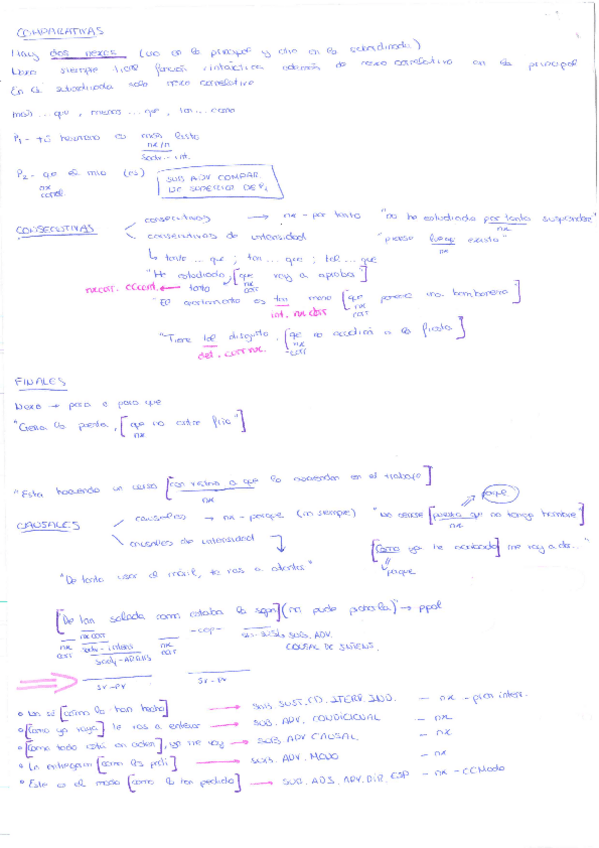 COMPARATIVAS
Hay dos nexos (uno en la principal y otro en la subordinada)
Nexo siempre tiene función sintáctica además de nexo correlativo en la principal
En la subordinada solo nexo correlativo
más ... que, menos ... que, tan ... como
P1 - tú hermano es más listo
nx/n
Sadv - int.
P2 - que el mío (es)
nx
SUB ADV COMPAR.
DE SUPERIOR DE P1
CONSECUTIVAS
consecutivas → nx - por tanto "no he estudiado por tanto suspenderé"
nx
consecutivas de intensidad "pienso luego existo"
nx
tanto ... que ; tan ... que ; tal ... que
"He estudiado [que voy a aprobar]"
nx corr. CCcant. ← tanto nx
corr
"El apartamento es tan mono [que parece una bombonera]"
int. nx corr nx
corr
"Tiene tal disgusto, [que no acudirá a la fiesta]
det. corr nx. nx
corr
FINALES
Nexo → para o para que
"Cierra la puerta, [que no entre frío"]
nx
"Esta haciendo un curso [con vistas a que lo asciendan en el trabajo]
nx
porque
CAUSALES
causales → nx - porque (no siempre) "No cené [puesto que no tengo hambre"]
nx
causales de intensidad [Como ya he acabado] me voy a dar..."
porque
"De tanto usar el móvil, te vas a atontar"
[De tan salada como estaba la sopa] (no pude probarla)" → ppal
nx corr
nx
corr nx
- cop -
SUB. ADV.
CAUSAL DE INTENS.
SV - PV SV - PV
• No sé [cómo lo han hecho] → SUB. SUST. CD. INTERR. IND. - nx - pron interr.
• [Como yo vaya] te vas a enterar → SUB. ADV. CONDICIONAL - nx
• [Como todo está en orden], yo me voy → SUB ADV CAUSAL - nx
• Lo entregaron [como les pedí] → SUB. ADV. MODO - nx
• Este es el modo [como lo han pedido] → SUB. ADJ. ADV. DIR. ESP - nx - CCModo